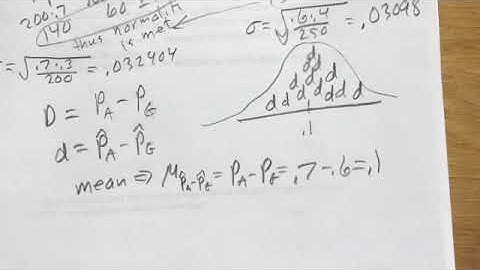 200·.7
140
60
thus normality
is met
σ=√(.6·.4/250) = .03098
=√(.7·.3/200) = .032404
d d d d d d d d d d d d d
.1
D = P_A - P_G
d = p̂_A - p̂_G
mean ⇒ μ_p̂_A-p̂_G = P_A - P_G = .7-.6=.1